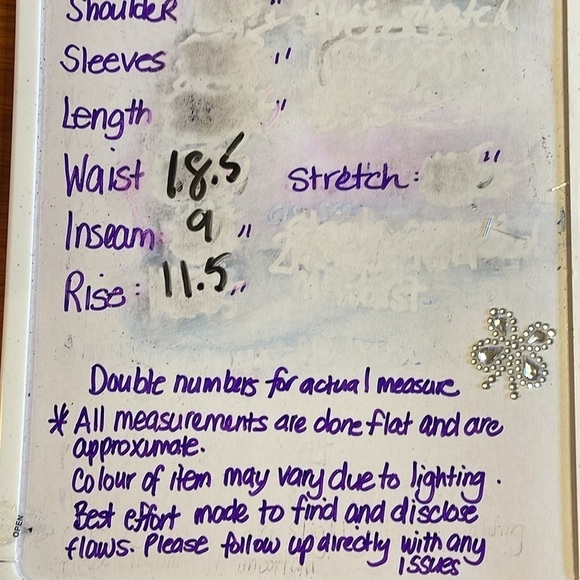 Shoulder "
Sleeves "
Length "
Waist 18.5 Stretch: "
Inseam: 9 "
Rise: 11.5 "
Double numbers for actual measure
* All measurements are done flat and are
approximate.
Colour of item may vary due to lighting.
Best effort made to find and disclose
flaws. Please follow up directly with any
issues
OPEN